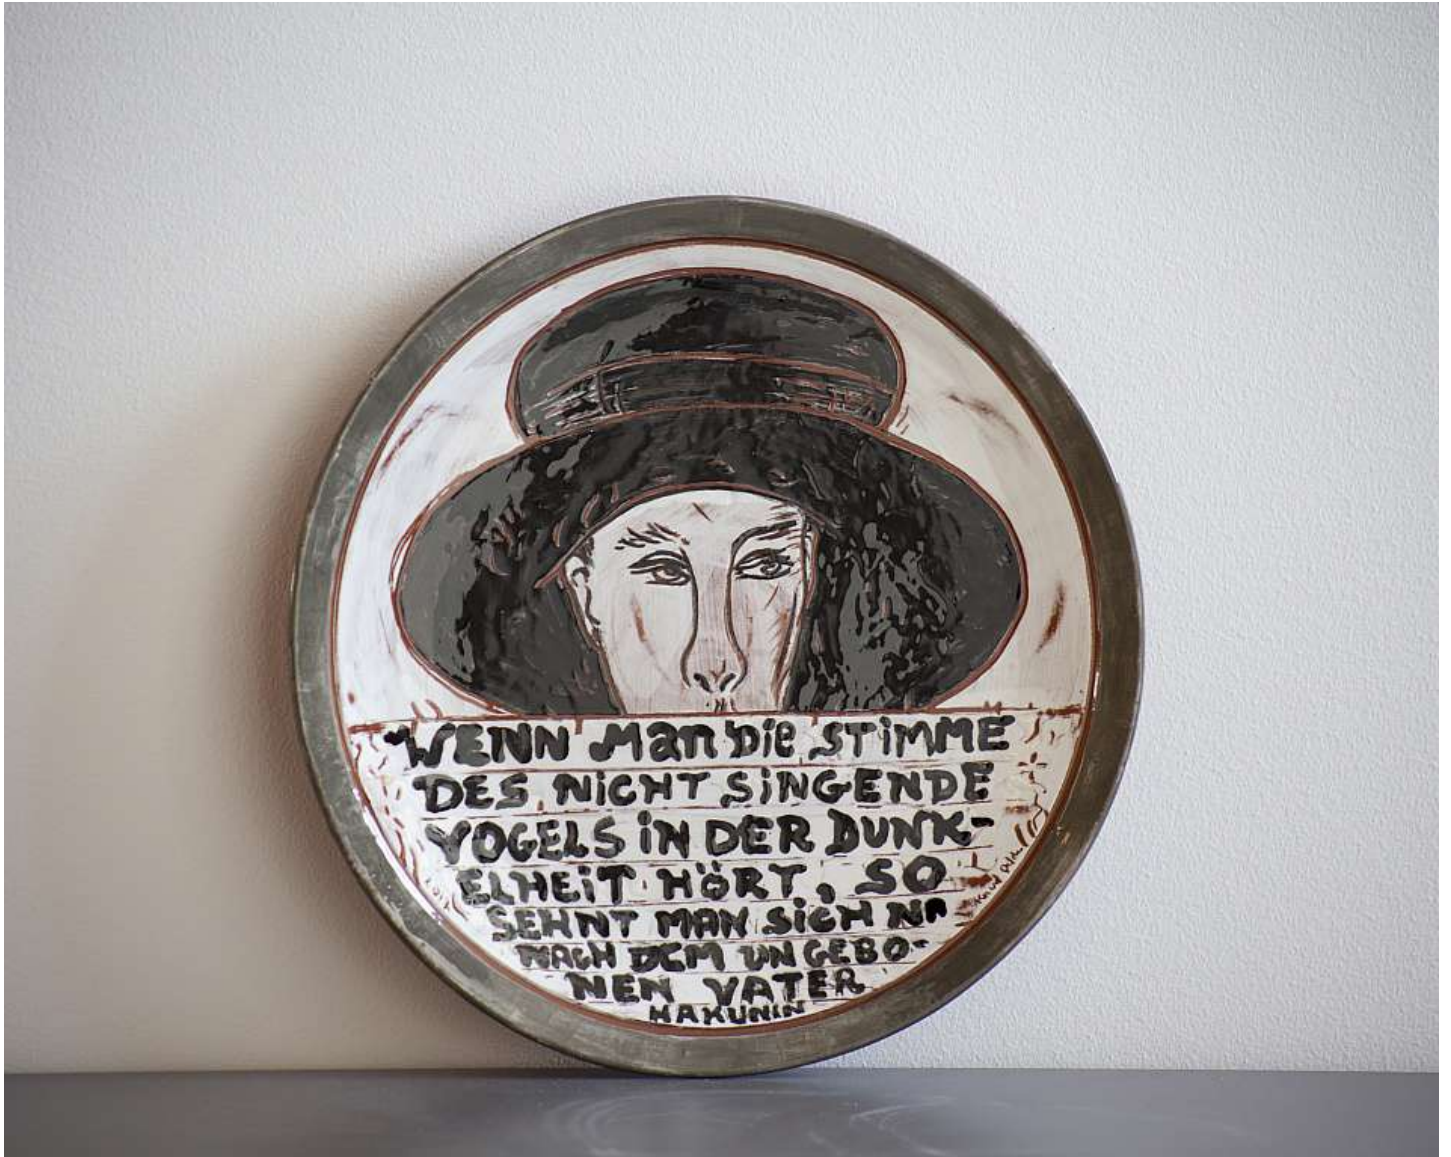 WENN Man Die STiMME
DES NiCHT SiNGENDE
VOGELS iN DER DUNK-
ELHEiT HÖRT, SO
SEHNT MAN SiCH NA
NACH DEM UNGEBO-
NEN VATER
HAKUNIN